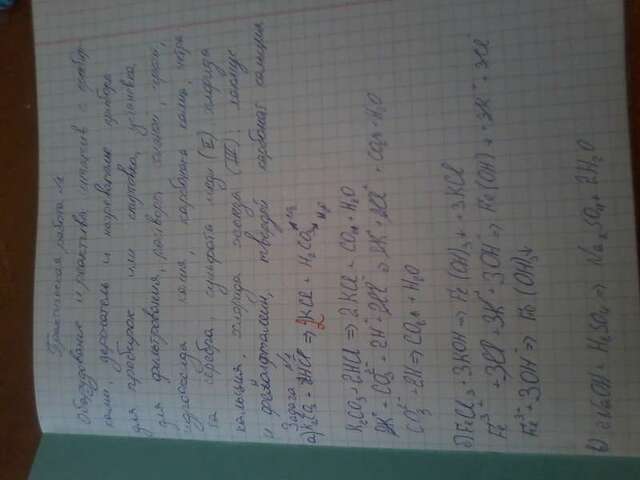 Практическая работа №
Оборудование и реактивы: штатив с пробир-
ками, держатель и нагреватель прибора
для пробирок или ступовка, установка
для фильтрования, раствора соляной,
гидроксида калия, карбоната калия,
серебра, сульфата меди (II), хлорида
кальция, хлорида железа (III),
и фенолфталеин, твёрдый карбонат кальция
Задача №
K₂CO₃ + 2HCl => 2KCl + CO₂↑ + H₂O
2K⁺ + CO₃²⁻ + 2H⁺ + 2Cl⁻ => 2K⁺ + 2Cl⁻ + CO₂↑ + H₂O
CO₃²⁻ + 2H => CO₂↑ + H₂O
б) FeCl₃ + 3KOH => Fe(OH)₃↓ + 3KCl
Fe³⁺ + 3Cl⁻ + 3K⁺ + 3OH⁻ => Fe(OH)₃↓ + 3K⁺ + 3Cl⁻
Fe³⁺ + 3OH⁻ => Fe(OH)₃↓
в) 2NaOH + H₂SO₄ => Na₂SO₄ + 2H₂O